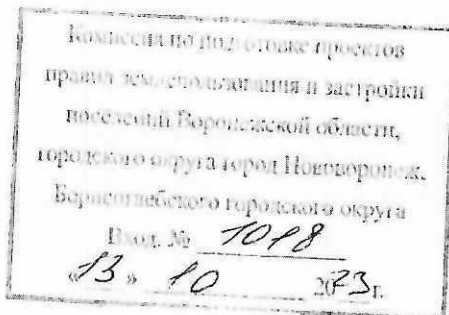 Комиссия по подготовке проектов
правил землепользования и застройки
поселений Воронежской области,
городского округа город Нововоронеж,
Борисоглебского городского округа
Вход. № 1018
«13» 10 2023 г.